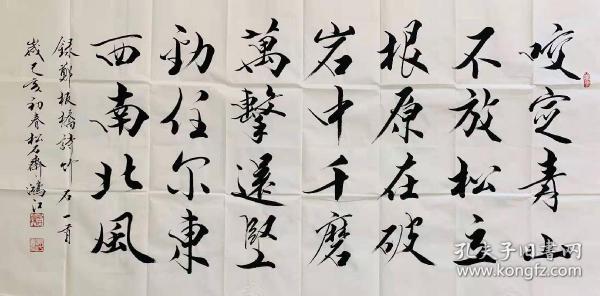 咬定青山
不放松立
根原在破
岩中千磨
萬擊還堅
勁任尔東
西南北風
録鄭板橋詩竹石一首
歲己亥初春松石齋鴻江
孔夫子旧书网
www.kongfz.com